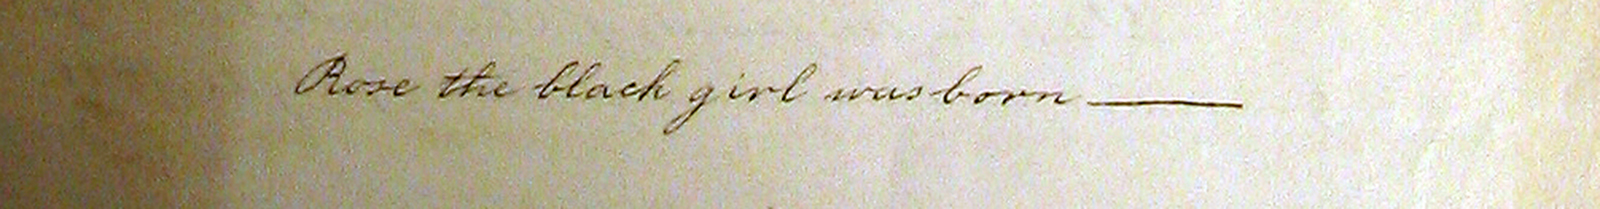 Rose the black girl was born ———